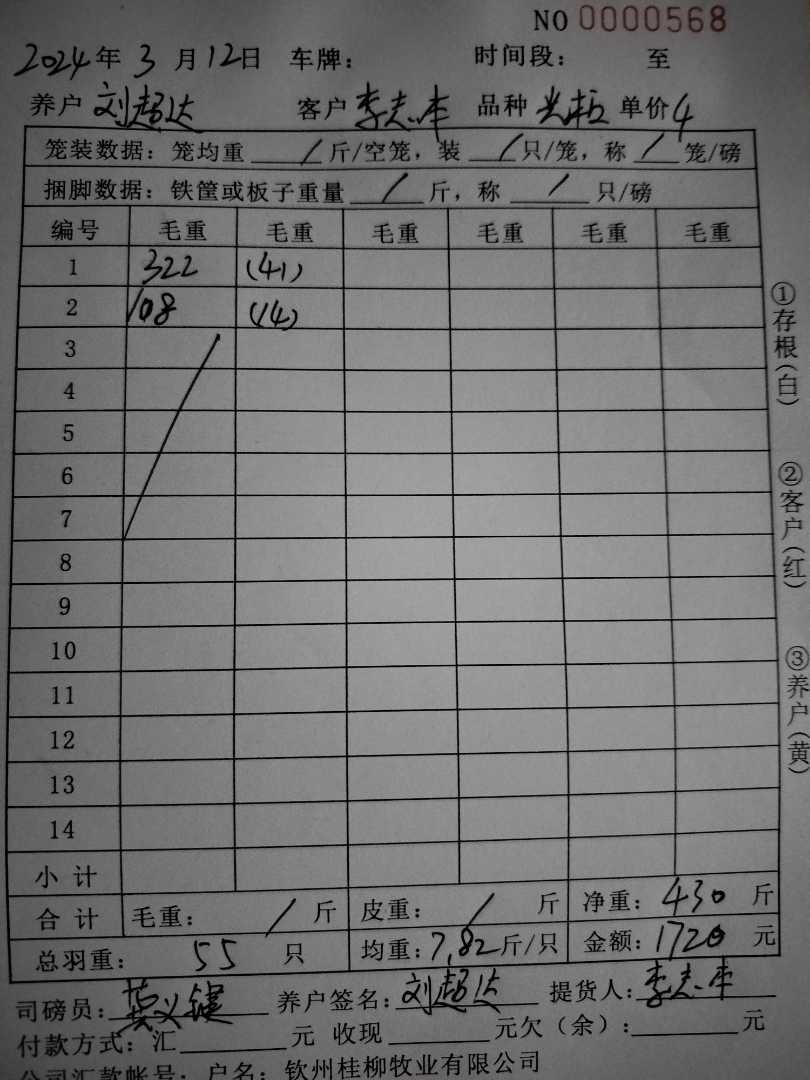 NO 0000568
2024年 3 月 12日 车牌: 时间段: 至
养户 刘超达 客户 李志丰 品种 单价 4
笼装数据: 笼均重 / 斤/空笼, 装 / 只/笼, 称 / 笼/磅
捆脚数据: 铁筐或板子重量 / 斤, 称 / 只/磅
编号 毛重 毛重 毛重 毛重 毛重 毛重
1 322 (41)
2 108 (14)
3
4
5
6
7
8
9
10
11
12
13
14
小 计
合 计 毛重: / 斤 皮重: / 斤 净重: 430 斤
总羽重: 55 只 均重: 7.82 斤/只 金额: 1720 元
司磅员: 养户签名: 刘超达 提货人: 李志丰
付款方式: 汇 元 收现 元欠(余): 元
公司汇款帐号: 户名: 钦州桂柳牧业有限公司
①存根(白)
②客户(红)
③养户(黄)